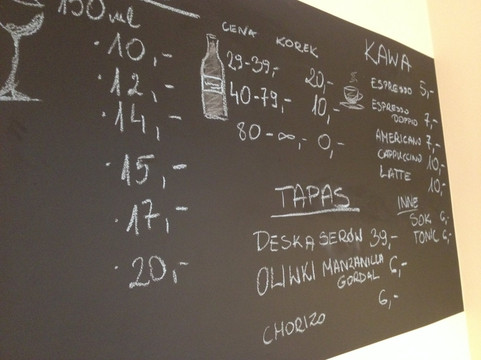 150ml
· 10,-
· 12,-
· 14,-
· 15,-
· 17,-
· 20,-
CENA KOREK
29-39,- 20,-
40-79,- 10,-
80-∞,- 0,-
TAPAS
DESKA SERÓW 39,-
OLIWKI MANZANILLA 6,-
GORDAL 6,-
CHORIZO
KAWA
ESPRESSO 5,-
ESPRESSO
DOPPIO 7,-
AMERICANO 7,-
CAPPUCCINO 10,-
LATTE 10,-
INNE
SOK 6,-
TONIC 6,-